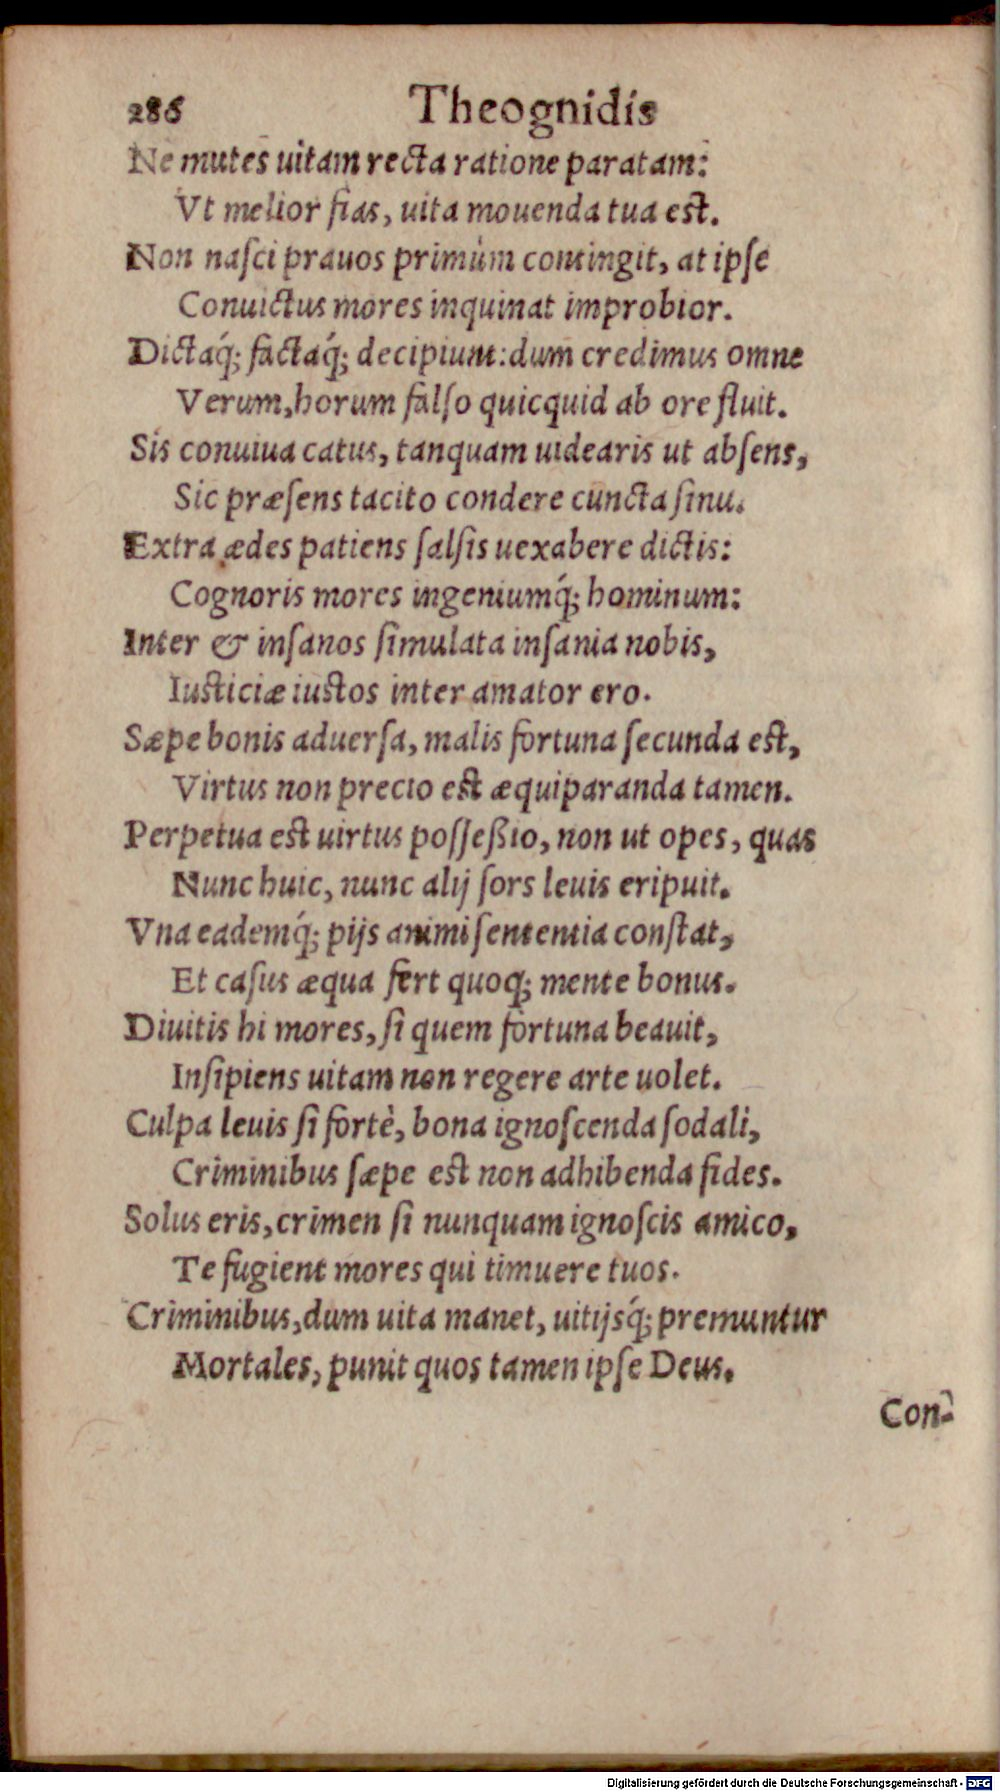 286 Theognidis
Ne mutes uitam recta ratione paratam:
Vt melior fias, uita mouenda tua est.
Non naſci prauos primùm contingit, at ipſe
Conuictus mores inquinat improbior.
Dictaq́; factaq́; decipiunt: dum credimus omne
Verum, horum falſo quicquid ab ore fluit.
Sis conuiua catus, tanquam uidearis ut abſens,
Sic præſens tacito condere cuncta ſinu.
Extra ædes patiens ſalſis uexabere dictis:
Cognoris mores ingeniumq́; hominum:
Inter & inſanos ſimulata inſania nobis,
Iusticiæ iustos inter amator ero.
Sæpe bonis aduerſa, malis fortuna ſecunda est,
Virtus non precio est æquiparanda tamen.
Perpetua est uirtus poſſeßio, non ut opes, quas
Nunc huic, nunc alij ſors leuis eripuit.
Vna eademq́; pijs animi ſententia conſtat,
Et caſus æqua fert quoq; mente bonus.
Diuitis hi mores, ſi quem fortuna beauit,
Inſipiens uitam non regere arte uolet.
Culpa leuis ſi fortè, bona ignoſcenda ſodali,
Criminibus ſæpe est non adhibenda fides.
Solus eris, crimen ſi nunquam ignoſcis amico,
Te fugient mores qui timuere tuos.
Criminibus, dum uita manet, uitijsq́; premuntur
Mortales, punit quos tamen ipſe Deus.
Con-
Digitalisierung gefördert durch die Deutsche Forschungsgemeinschaft - DFG